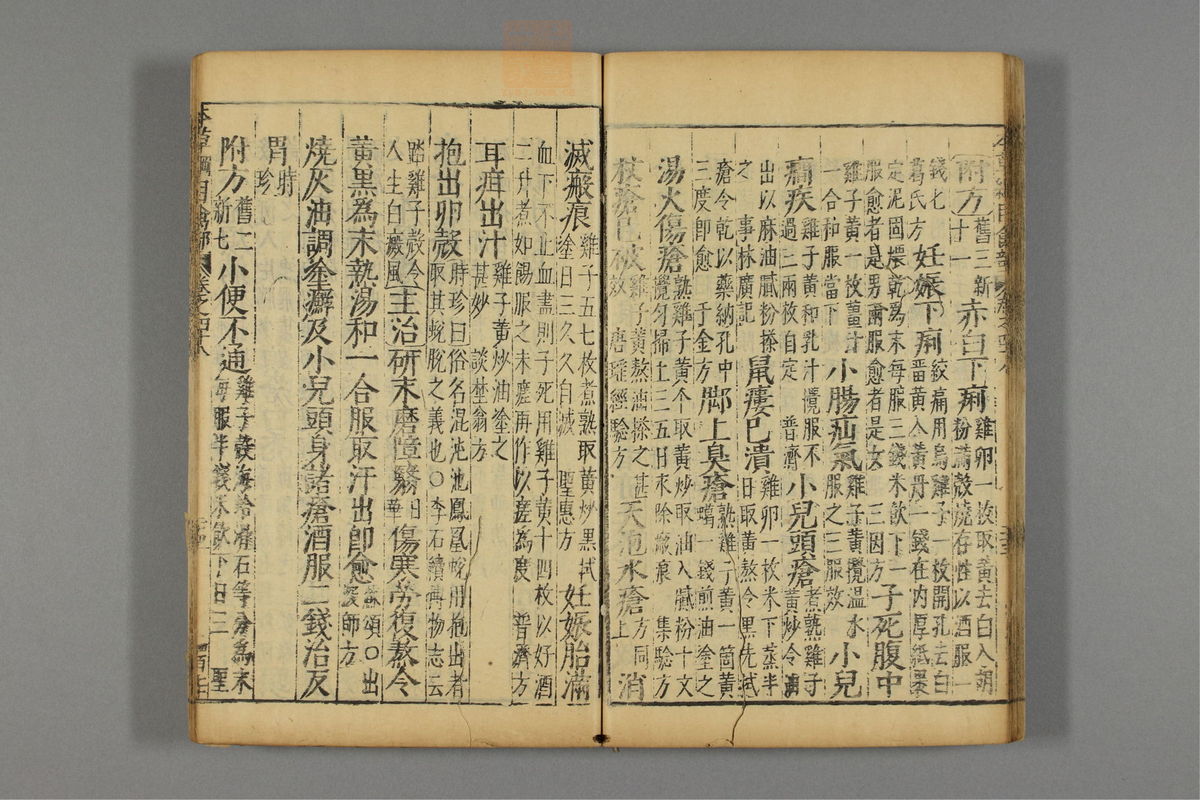 附方舊三新十一赤白下痢雞卵一枚取黃去白入胡粉滿殼燒存性以酒服一
錢匕葛氏方妊娠下痢絞痛用烏雞子一枚開孔去白留黃入黃丹一錢在內厚紙裹
定泥固煨乾爲末每服三錢米飲下一服愈者是男兩服愈者是女三因方子死腹中
雞子黃一枚薑汁一合和服當下小腸疝氣雞子黃攪溫水服之三服效小兒
癇疾雞子黃和乳汁攪服不過三兩枚自定普濟小兒頭瘡煮熟雞子黃炒令油
出以麻油膩粉搽之事林廣記鼠瘻已潰雞卵一枚米下蒸半日取黃熬令黑先拭
瘡令乾以藥納孔中三度即愈千金方脚上臭瘡熟雞子黃一箇黃蠟一錢煎油塗之
湯火傷瘡熟雞子黃个取黃炒取油入膩粉十文攪勻掃上三五日永除瘢痕集驗方
杖瘡已破雞子黃熬油搽之甚效唐瑤經驗方天泡水瘡方同上消
滅瘢痕雞子五七枚煮熟取黃炒黑拭塗日三久久自滅聖惠方妊娠胎漏
血下不止血盡則子死用雞子黃十四枚以好酒二升煮如餳服之未瘥再作以瘥爲度普濟方
耳疳出汁雞子黃炒油塗之甚妙談埜翁方
抱出卵殼時珍曰俗名混沌池鳳凰蛻用抱出者取其蛻脫之義也○李石續博物志云
踏雞子殼令人生白癜風主治研末磨障翳日華傷寒勞復熬令
黃黑爲末熱湯和一合服取汗出即愈蘇頌○出深師方
燒灰油調塗癬及小兒頭身諸瘡酒服二錢治反
胃時珍
附方舊二新七小便不通雞子殼海蛤滑石等分爲末每服半錢米飲下日三聖
本草綱目禽部 卷之四十八